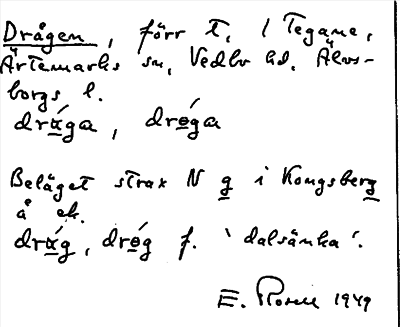 Drågen, förr t. / Tegane,
Ärtemarks sn, Vedbo hd, Älvs-
borgs l.
drάga, drǿga
Beläget strax N g i Kongsberg
å ek.
drάg, drǿg f. 'dalsänka'.
E. 1949